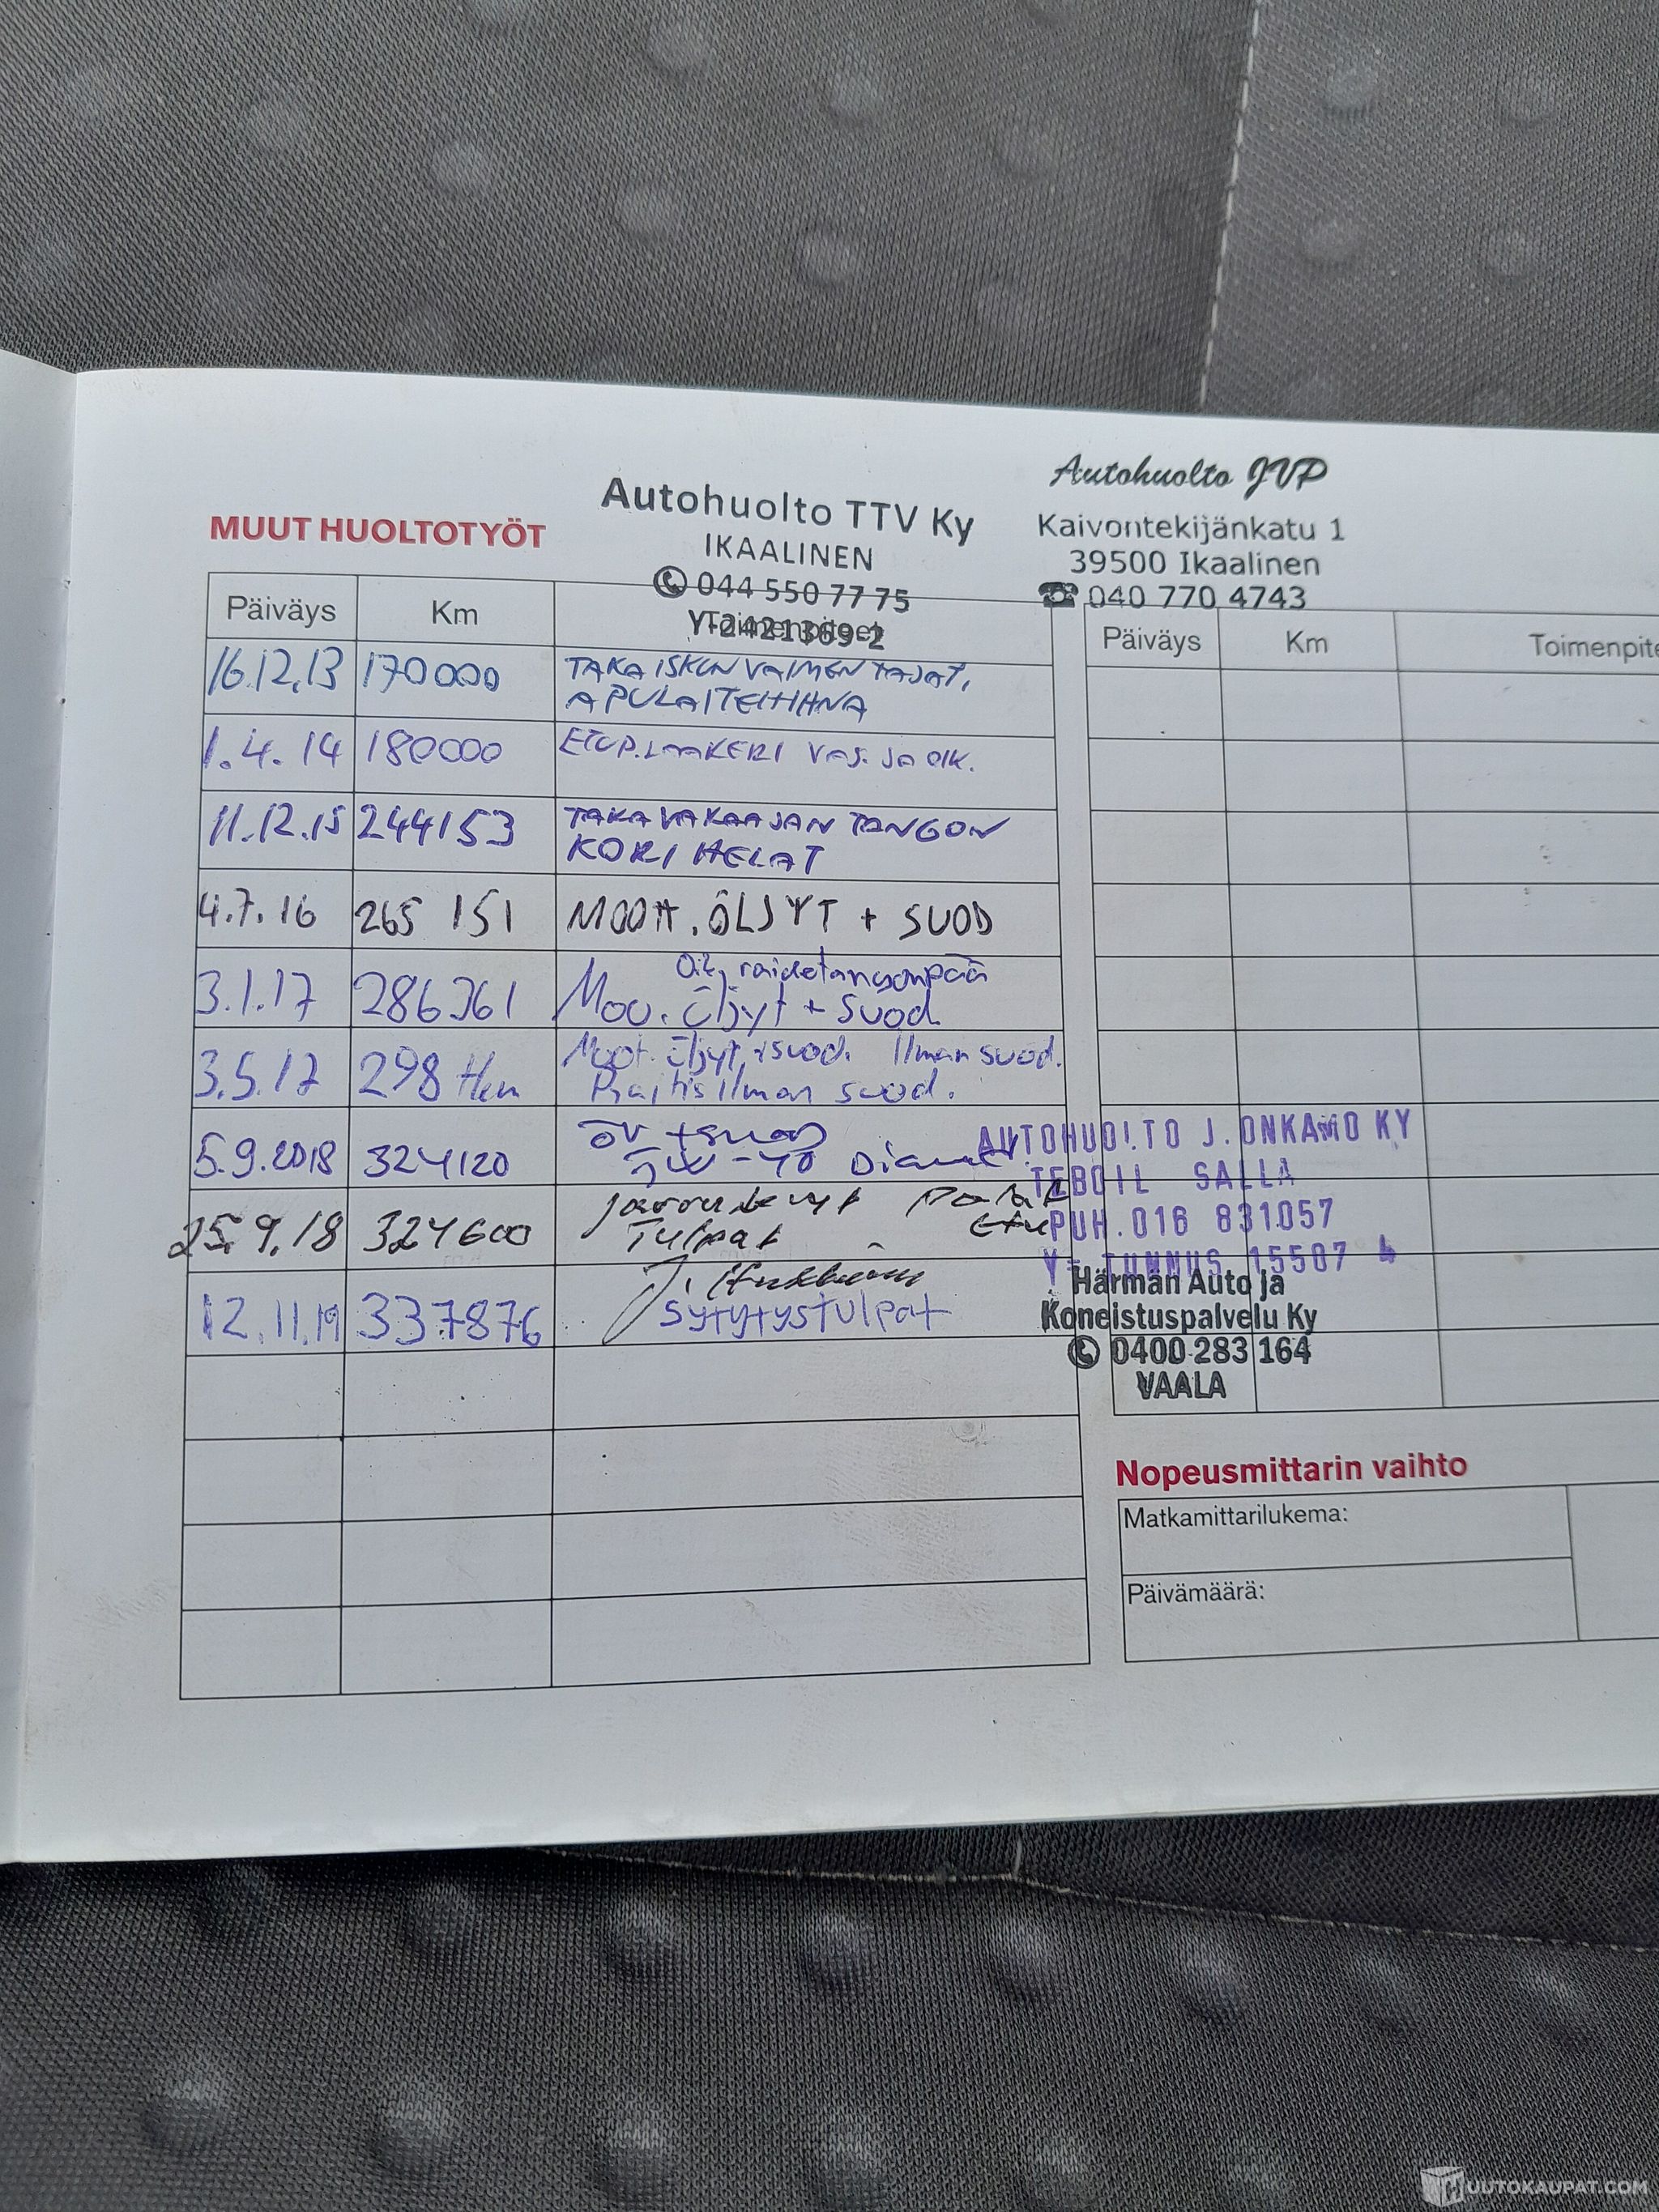 MUUT HUOLTOTYÖT
Autohuolto TTV Ky
IKAALINEN
044 550 77 75
Y-2421369-2
Autohuolto JVP
Kaivontekijänkatu 1
39500 Ikaalinen
040 770 4743
Päiväys Km Toimenpiteet
16.12.13 170000 TAKA ISKUNVAIMENTAJAT,
APULAITEHIHNA
1.4.14 180000 ETUP.LAAKERI VAS. JA OIK.
11.12.15 244153 TAKAVAKAAJAN TANGON
KORI HELAT
4.7.16 265 151 MOOTT. ÖLJYT + SUOD
3.1.17 286361 Oik. raidetangonpää
Moo. öljyt + Suod.
3.5.17 298 Moot. öljyt, + suod. Ilman suod.
Raitis ilman suod.
5.9.2018 324120 ÖV + suod
5W-40
25.9.18 324600 Jarrulevyt Palat
Tulpat Etu
12.11.19 337876 Sytytystulpat
Päiväys Km Toimenpite
AUTOHUOLTO J. ONKAMO KY
TEBOIL SALLA
PUH. 016 831057
Y-TUNNUS 15507 4
Härmän Auto ja
Koneistuspalvelu Ky
0400 283 164
VAALA
Nopeusmittarin vaihto
Matkamittarilukema:
Päivämäärä:
HUUTOKAUPAT.COM